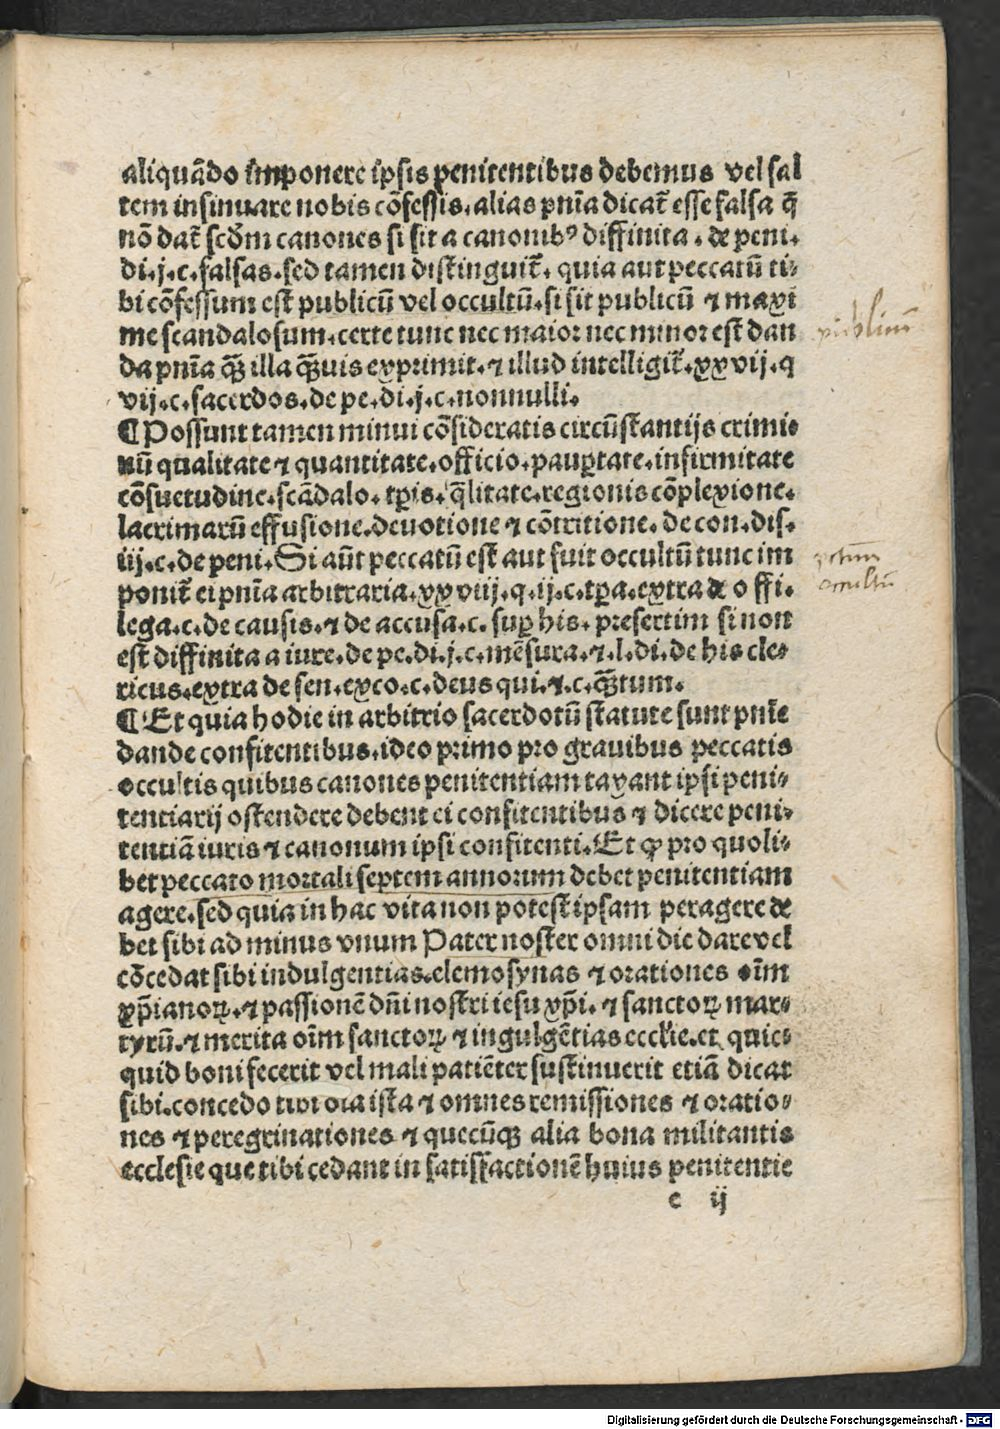 aliquādo imponere ipsis penitentibus debemus vel sal
tem insinuare nobis cōfessis. alias pnīa dicat̄ esse falsa q̄
nō dat̄ scd̄m canones si sit a canonibꝰ diffinita . de peni.
di.j.c.falsas.sed tamen distinguit̄. quia aut peccatū ti-
bi cōfessum est publicū vel occultū.si sit publicū ⁊ maxi
publicum
me scandalosum.certe tunc nec maior nec minor est dan
da pnīa qꝫ̄ illa qꝫ̄uis exprimit.⁊ illud intelligit̄.xxvij.q
vij.c.sacerdos.de pe.di.j.c.nonnulli.
¶Possunt tamen minui cōsideratis circūstantijs crimi-
nū qualitate ⁊ quantitate.officio.paupꝑtate.infirmitate
cōsuetudine.scādalo. tp̄is.q̄litate.regionis cōplexione.
lacrimarū effusione.deuotione ⁊ cōtritione. de con. dis.
iij.c.de peni.Si aūt peccatū est aut fuit occultū tunc im
pctum
ponit̄ ei pnīa arbitraria.xxviij.q.ij.c.tp̄a.extra de o ffi.
occultū
lega.c.de causis.⁊ de accusa.c. suꝑ his. presertim si non
est diffinita a iure.de pe.di.j.c.mēsura.⁊.l.di.de his cle-
ricus.extra de sen.exco.c.deus qui.⁊.c.qꝫ̄tum.
¶Et quia hodie in arbitrio sacerdotū statute sunt pnīe
dande confitentibus.ideo primo pro grauibus peccatis
occultis quibus canones penitentiam taxant ipsi peni-
tentiarij ostendere debent ei confitentibus ⁊ dicere peni-
tentiā iuris ⁊ canonum ipsi confitenti.Et ꝙ pro quoli-
bet peccato mortali septem annorum debet penitentiam
agere.sed quia in hac vita non potest ipsam peragere de
bet sibi ad minus vnum Pater noster omni die dare vel
cōcedat sibi indulgentias.elemosynas ⁊ orationes oīm
xp̄ianoꝝ.⁊ passionē dn̄i nostri iesu xp̄i. ⁊ sanctoꝝ mar-
tyrū.⁊ merita oīm sanctoꝝ ⁊ ingulgētias eccl̄ie.et quic-
quid boni fecerit vel mali patiēter sustinuerit etiā dicat
sibi.concedo tibi oīa ista ⁊ omnes remissiones ⁊ oratio-
nes ⁊ peregrinationes ⁊ quecūqꝫ alia bona militantis
ecclesie que tibi cedant in satisfactionē huius penitentie
e ij
Digitalisierung gefördert durch die Deutsche Forschungsgemeinschaft - DFG